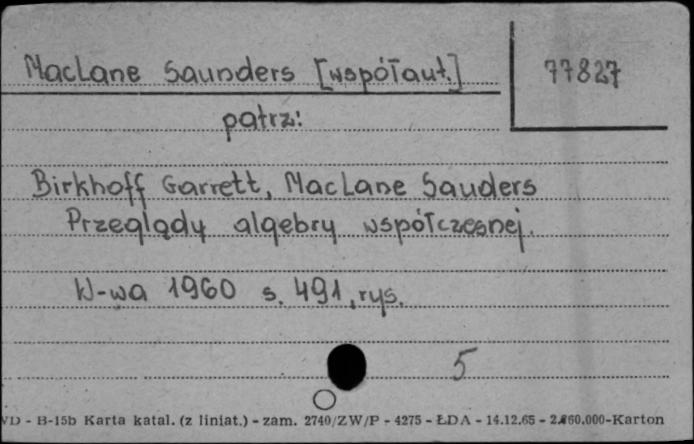 MacLane Saunders [współaut.]
77827
patrz:
Birkhoff Garrett, MacLane Sauders
Przeglądy algebry współczesnej.
W-wa 1960 s. 491, rys.
5
VD - B-15b Karta katal. (z liniat.) - zam. 2740/ZW/P - 4275 - ŁDA - 14.12.65 - 2.860.000-Karton